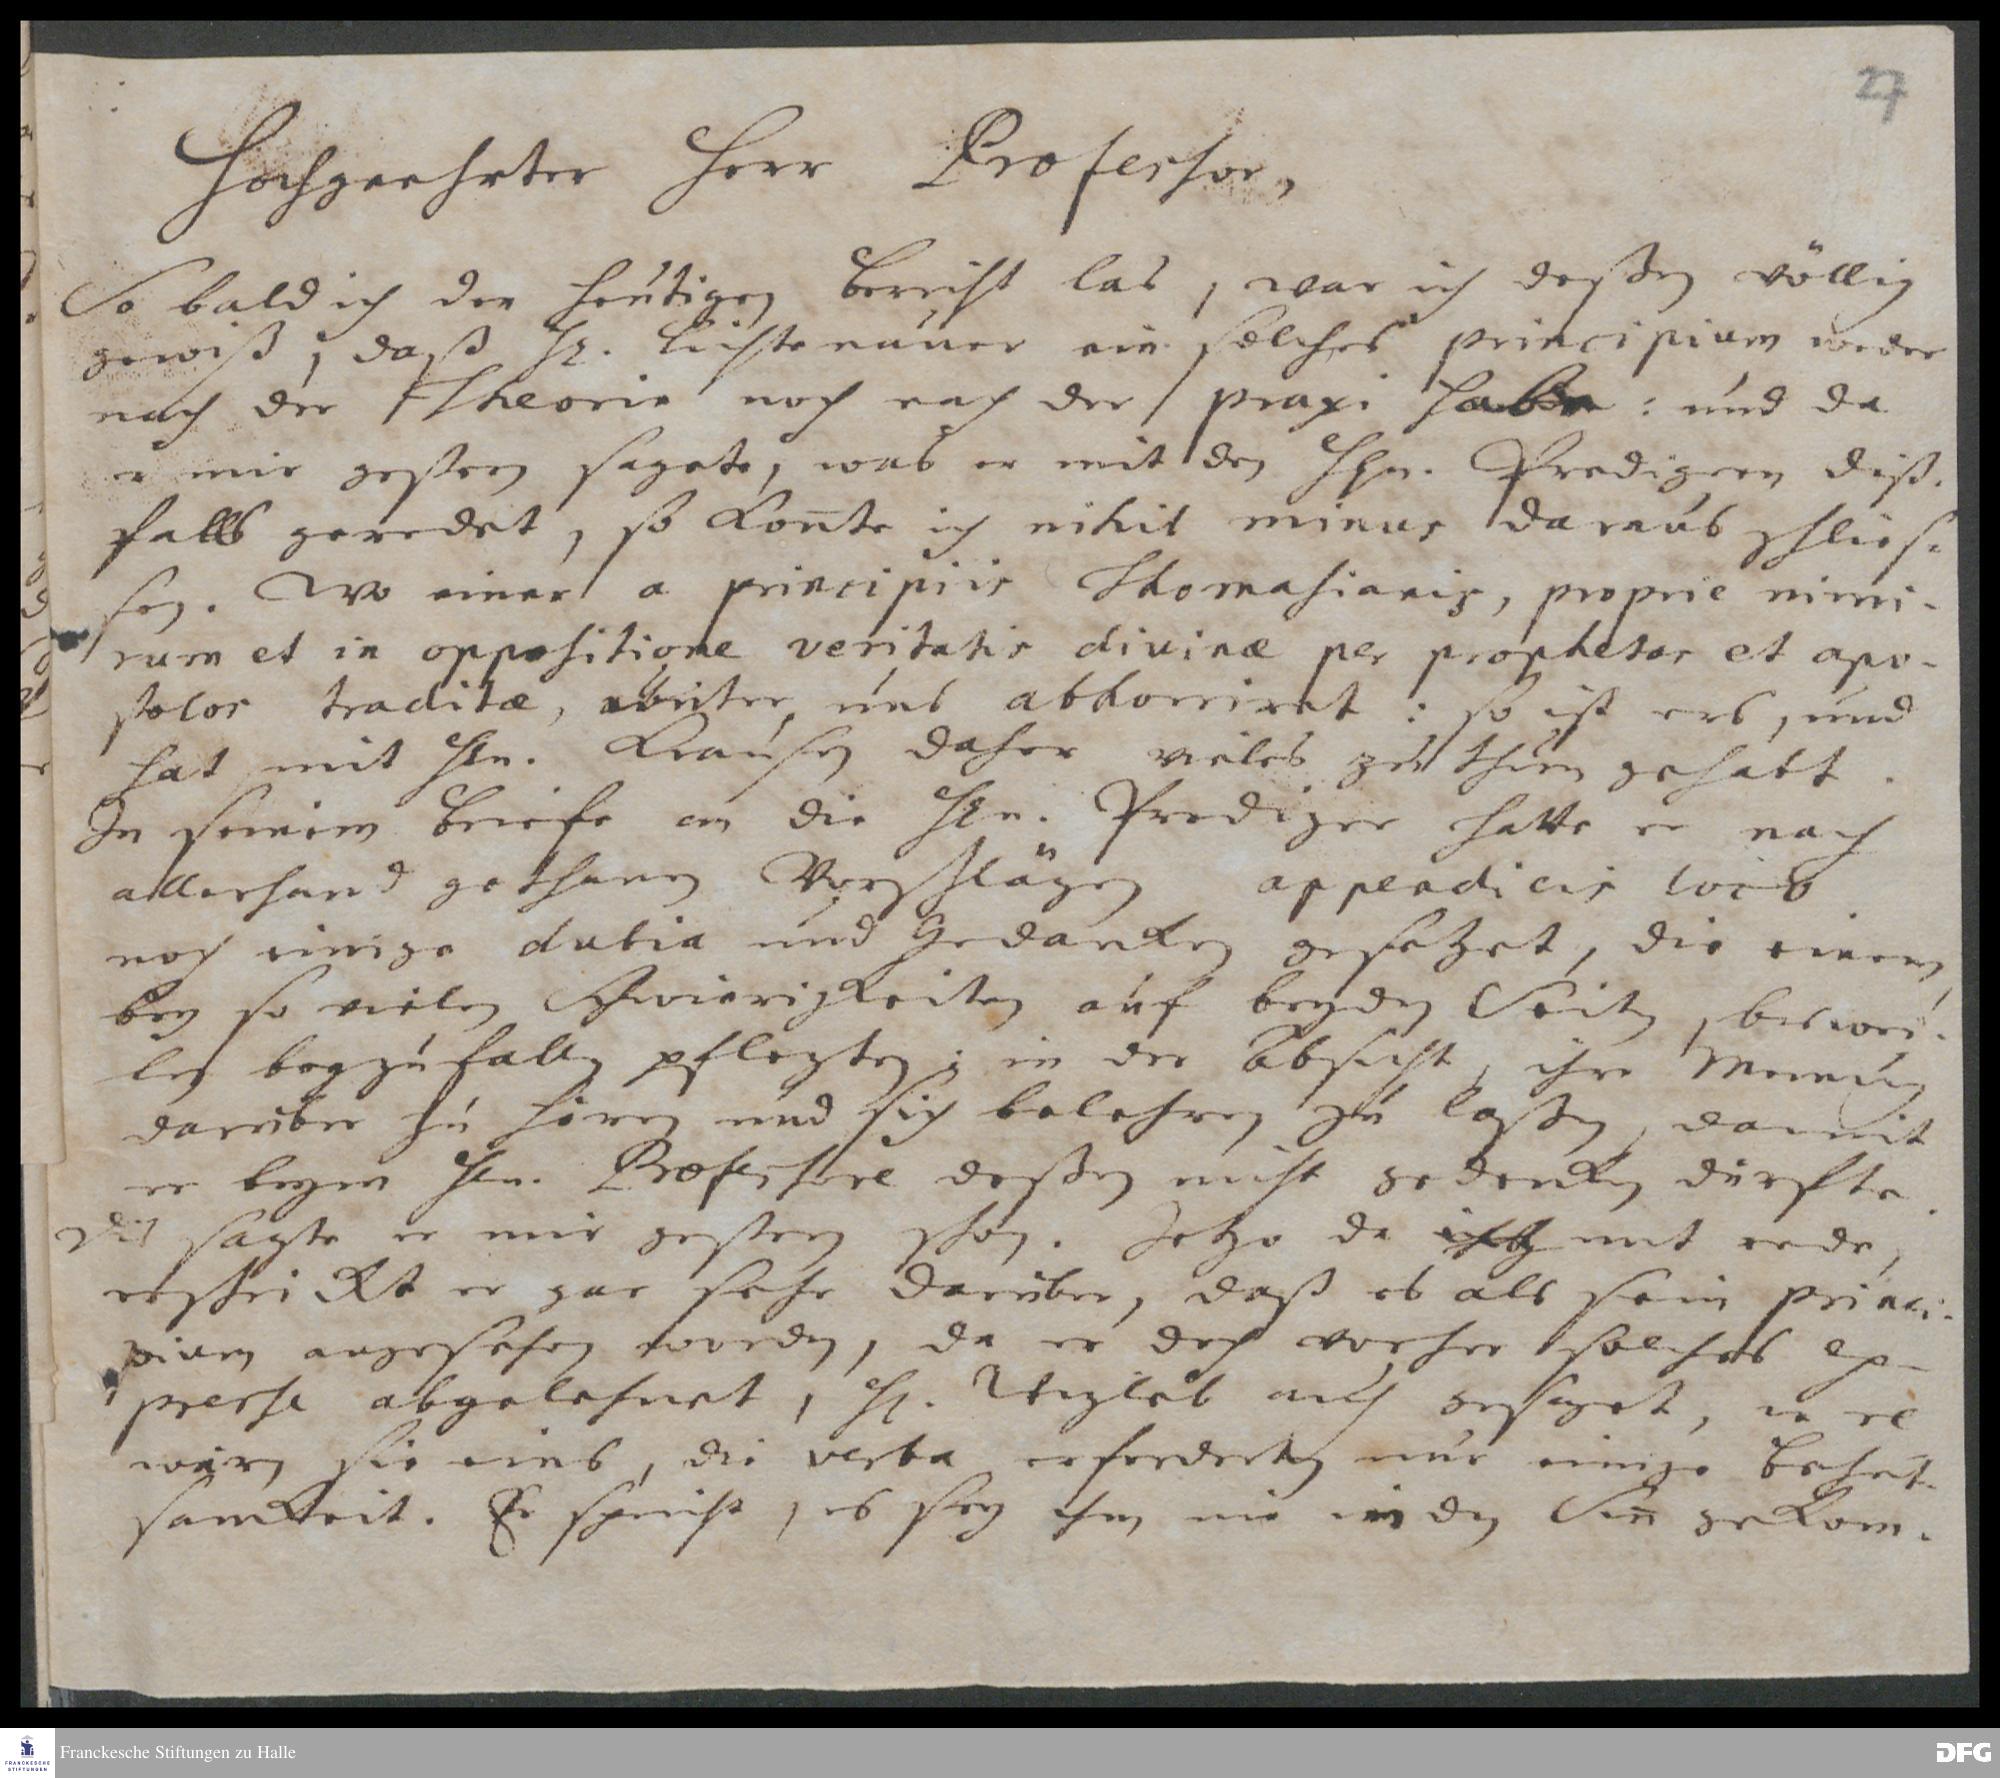 27
Hochgeehrter Herr Professor,
So bald ich den heutigen Bericht las, war ich deßen völlig
gewiß, daß H. Lichtenauer ein solches principium weder
nach der Theorie noch nach der praxi habe: und da
er mir gestern sagete, was er mit den HEn. Predigern diß-
falls geredet, so konte ich nihil minus daraus schlies-
sen. Wo einer a principiis Thomasianis, proprie nimi-
rum et in oppositione veritatis divinæ per prophetas et apo-
stolos traditæ, unter uns abhorriret: so ist ers, und
hat mit HEn. Krausen daher vieles zu thun gehabt.
In seinem Briefe an die HEn. Prediger hatte er nach
allerhand gethanen Vorschlägen appendicis loco
noch einige dubia und Gedanken gesetzet, die einem
bey so vielen Schwierigkeiten auf beyden Seiten, biswei-
len beyzufallen pflegten; in der Absicht, ihre Meinung
darüber zu hören und sich belehren zu laßen, damit
er beym HEn. Professore deßen nicht gedenken dürfte.
Diß sagte er mir gestern schon. Jetzo da ich mit rede,
erschrickt er gar sehr darüber, daß es als sein princi-
pium angesehen worden, da er doch vorher solches ex-
presse abgelehnet, H. auch gesaget, in re
wären sie eins, die verba erforderten nur einige Behut-
samkeit. Er spricht, es sey ihm nie in den Sin gekom-
Franckesche Stiftungen zu Halle
FRANCKESCHE
STIFTUNGEN
DFG